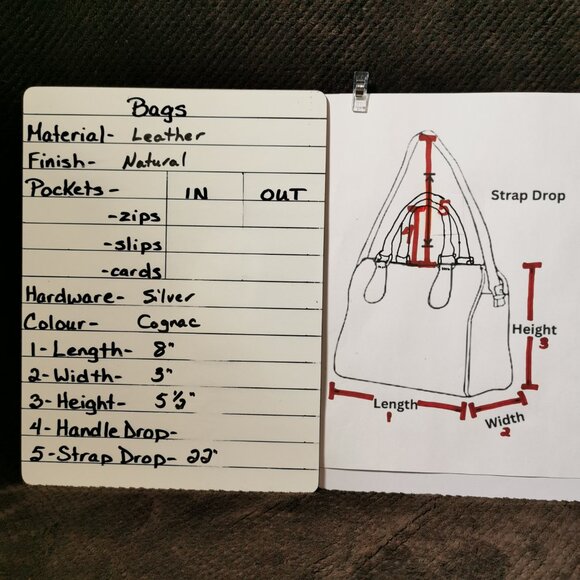 Bags
Material- Leather
Finish- Natural
Pockets- IN OUT
-zips
-slips
-cards
Hardware- Silver
Colour- Cognac
1-Length- 8"
2-Width- 3"
3-Height- 5 1/2"
4-Handle Drop-
5-Strap Drop- 22"
Strap Drop
5
4
Height
3
Length
1
Width
2